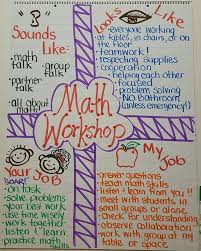 Sounds
Like:
• math talk
• group talk
• partner talk
• all about math!
Looks Like
• everyone working
at tables, in chairs, or on
the floor
• teamwork!
• respecting supplies
• cooperation
• helping each other
• focused
• problem solving
• No bathroom
(unless emergency!)
Math
Workshop
Your Job
• on task
• solve problems
• your best work
• use time wisely
• work together!
• listen & learn
• practice math
skills
My
Job
• answer questions
• teach math skills
• listen & learn from you!!
• meet with students in
small groups or alone
• check for understanding
• observe collaboration
• work with my group at my
table or space